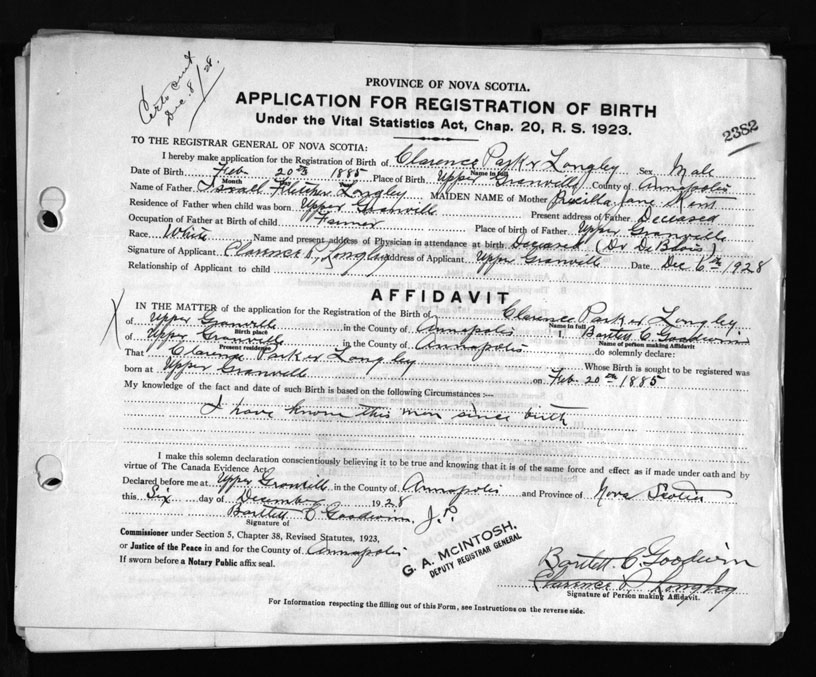 Certs sent
Dec. 8/28.
PROVINCE OF NOVA SCOTIA.
APPLICATION FOR REGISTRATION OF BIRTH
Under the Vital Statistics Act, Chap. 20, R. S. 1923.
2382
TO THE REGISTRAR GENERAL OF NOVA SCOTIA:
I hereby make application for the Registration of Birth of Clarence Parker Longley Sex Male
Name in full
Date of Birth Feb 20th 1885 Place of Birth Upper Granville County of Annapolis
Month Day Year
Name of Father Israll Fletcher Longley MAIDEN NAME of Mother Priscilla Jane Kent
Residence of Father when child was born Upper Granville Present address of Father Deceased
Occupation of Father at Birth of child Farmer Place of birth of Father Upper Granville
Race White Name and present address of Physician in attendance at birth Deceased (Dr De Blois)
Signature of Applicant Clarence P. Longley address of Applicant Upper Granville Date Dec 6th 1928
Relationship of Applicant to child
AFFIDAVIT
X
IN THE MATTER of the application for the Registration of the Birth of Clarence Parker Longley
Name in full
of Upper Granville in the County of Annapolis I, Bartlett C. Goodwin
Birth place
of Upper Granville in the County of Annapolis do solemnly declare:
Present residence Name of person making Affidavit
That Clarence Parker Longley Whose Birth is sought to be registered was
born at Upper Granville on Feb. 20th 1885
My knowledge of the fact and date of such Birth is based on the following Circumstances :—
I have known this man since birth
I make this solemn declaration conscientiously believing it to be true and knowing that it is of the same force and effect as if made under oath and by
virtue of The Canada Evidence Act.
Declared before me at Upper Granville in the County of Annapolis and Province of Nova Scotia
this Six day of December 1928
Bartlett C Goodwin J.P.
Signature of
Commissioner under Section 5, Chapter 38, Revised Statutes, 1923,
or Justice of the Peace in and for the County of Annapolis
If sworn before a Notary Public affix seal.
G. A. McINTOSH,
DEPUTY REGISTRAR GENERAL
Bartlett C. Goodwin
Clarence P Longley
Signature of Person making Affidavit.
For Information respecting the filling out of this Form, see Instructions on the reverse side.